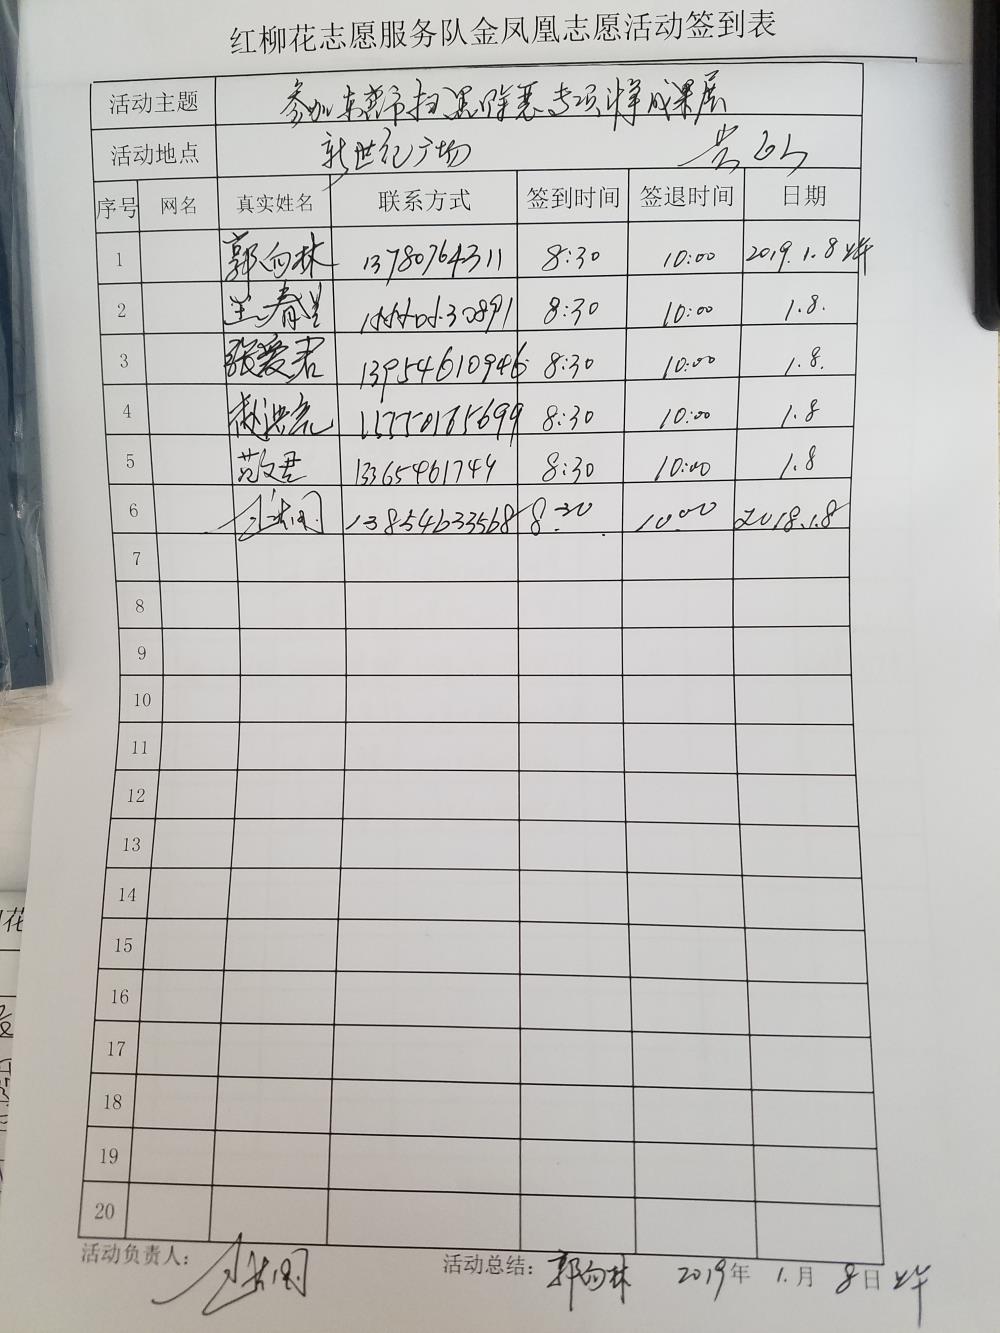 红柳花志愿服务队金凤凰志愿活动签到表
活动主题 参加东营市扫黑除恶专项斗争成果展
活动地点 新世纪广场
序号 网名 真实姓名 联系方式 签到时间 签退时间 日期
1 郭向林 13780764311 8:30 10:00 2019.1.8上午
2 王春 8:30 10:00 1.8.
3 张爱君 13954610946 8:30 10:00 1.8.
4 8:30 10:00 1.8
5 13365461749 8:30 10:00 1.8
6 13854633568 8:30 10:00 2018.1.8
7
8
9
10
11
12
13
14
15
16
17
18
19
20
活动负责人: 活动总结: 郭向林 2019年 1.月 8日 上午